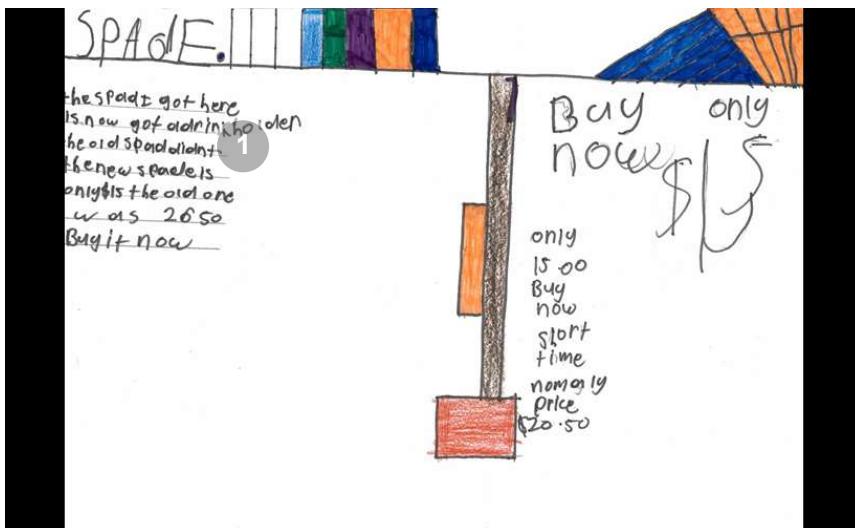 SPAdE.
the spade I got here
is now got adrink holder
the old spad didnt
the new spade is
only $15 the old one
was 26 50
Buy it now
1
Buy now
only $15
only
15 00
Buy
now
short
time
nomaly
price
$20.50